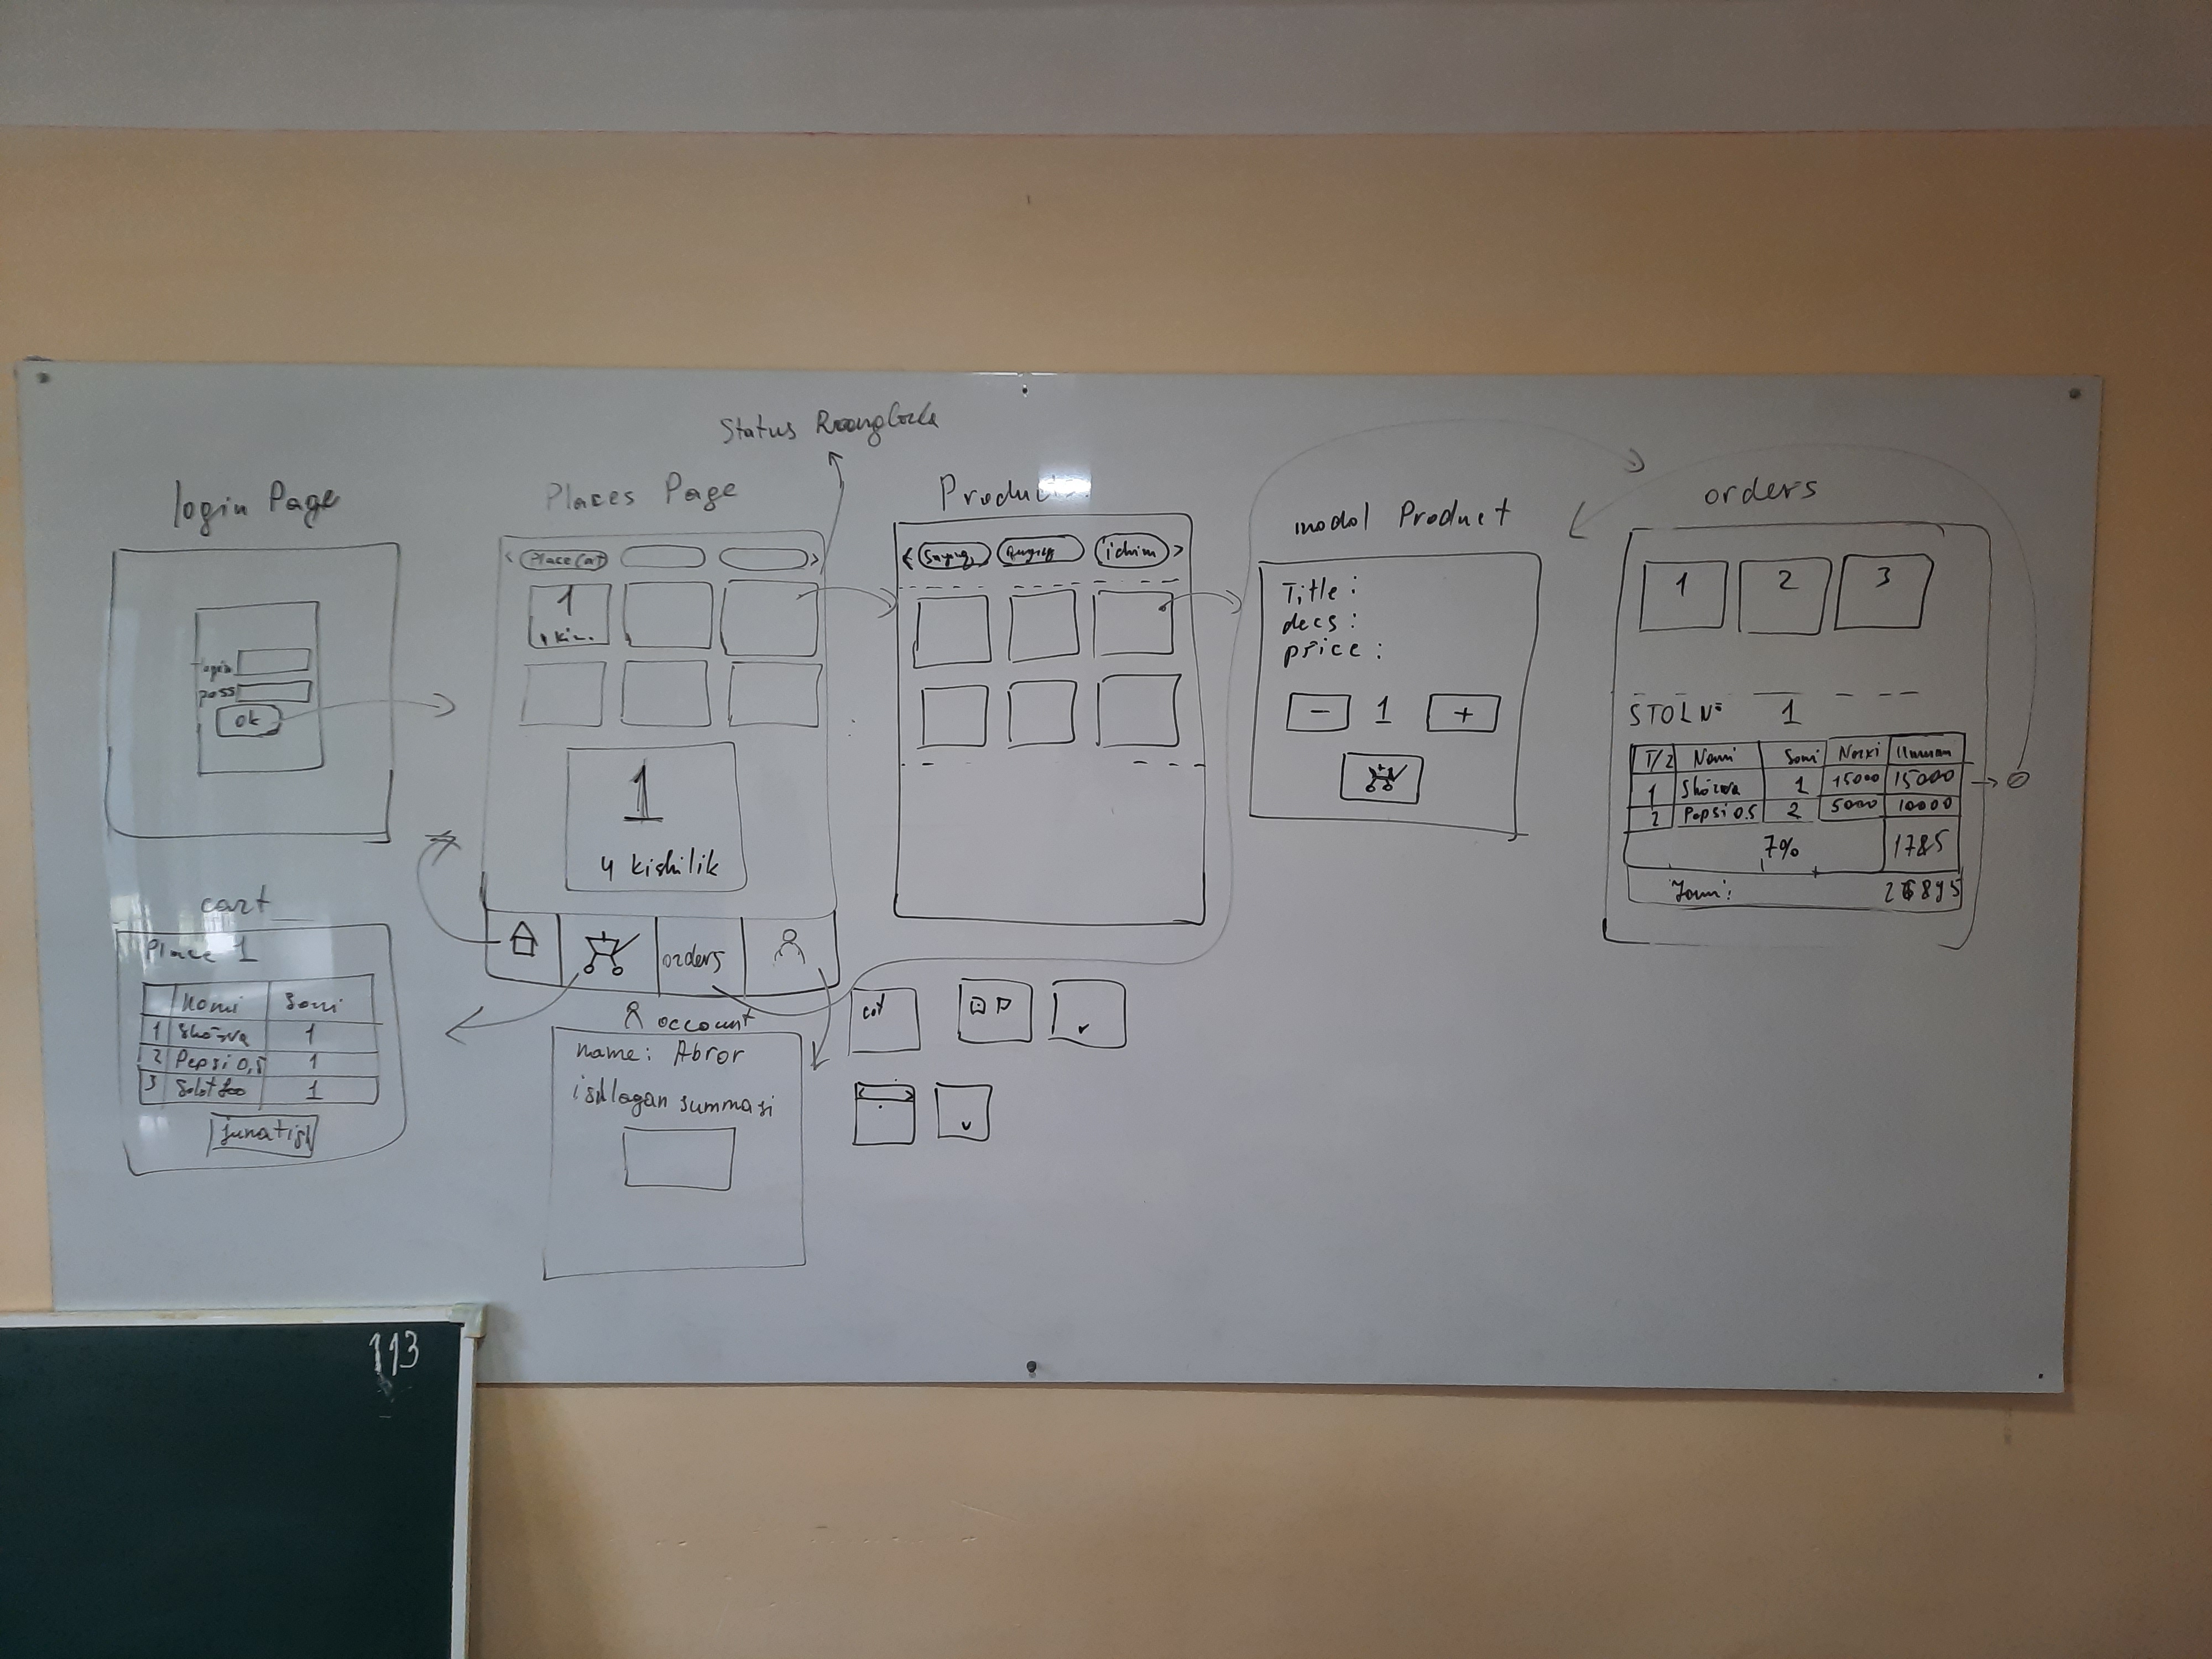 Status
login Page
login
pass
ok
Places Page
Place(at)
1
1
4 kishilik
orders
Produc
ichim
modal Product
Title :
decs :
price :
- 1 +
orders
1 2 3
STOL № 1
T/2 Nomi Soni Narxi Umum
1 Shórva 1 15000 15000
2 Pepsi 0.5 2 5000 10000
7% 1785
Jami:
cart
Place 1
Nomi Soni
1 Shórva 1
2 Pepsi 0,5 1
3 1
account
name: Abror
ishlagan summasi
cat
113